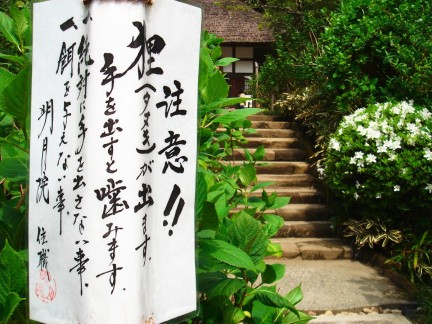 注意!!
狸(タヌキ)が出ます。
手を出すと噛みます。
一、絶対に手を出さない事。
一、餌を与えない事。
明月院 住職